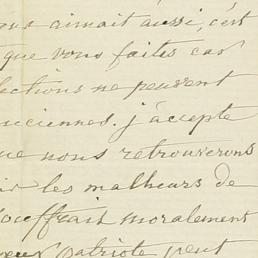 aimait aussi, c'est
que vous faites cas
lections ne peuvent
anciennes. j'accepte
que nous retrouverons
les malheurs de
souffrait moralement
patriote peut